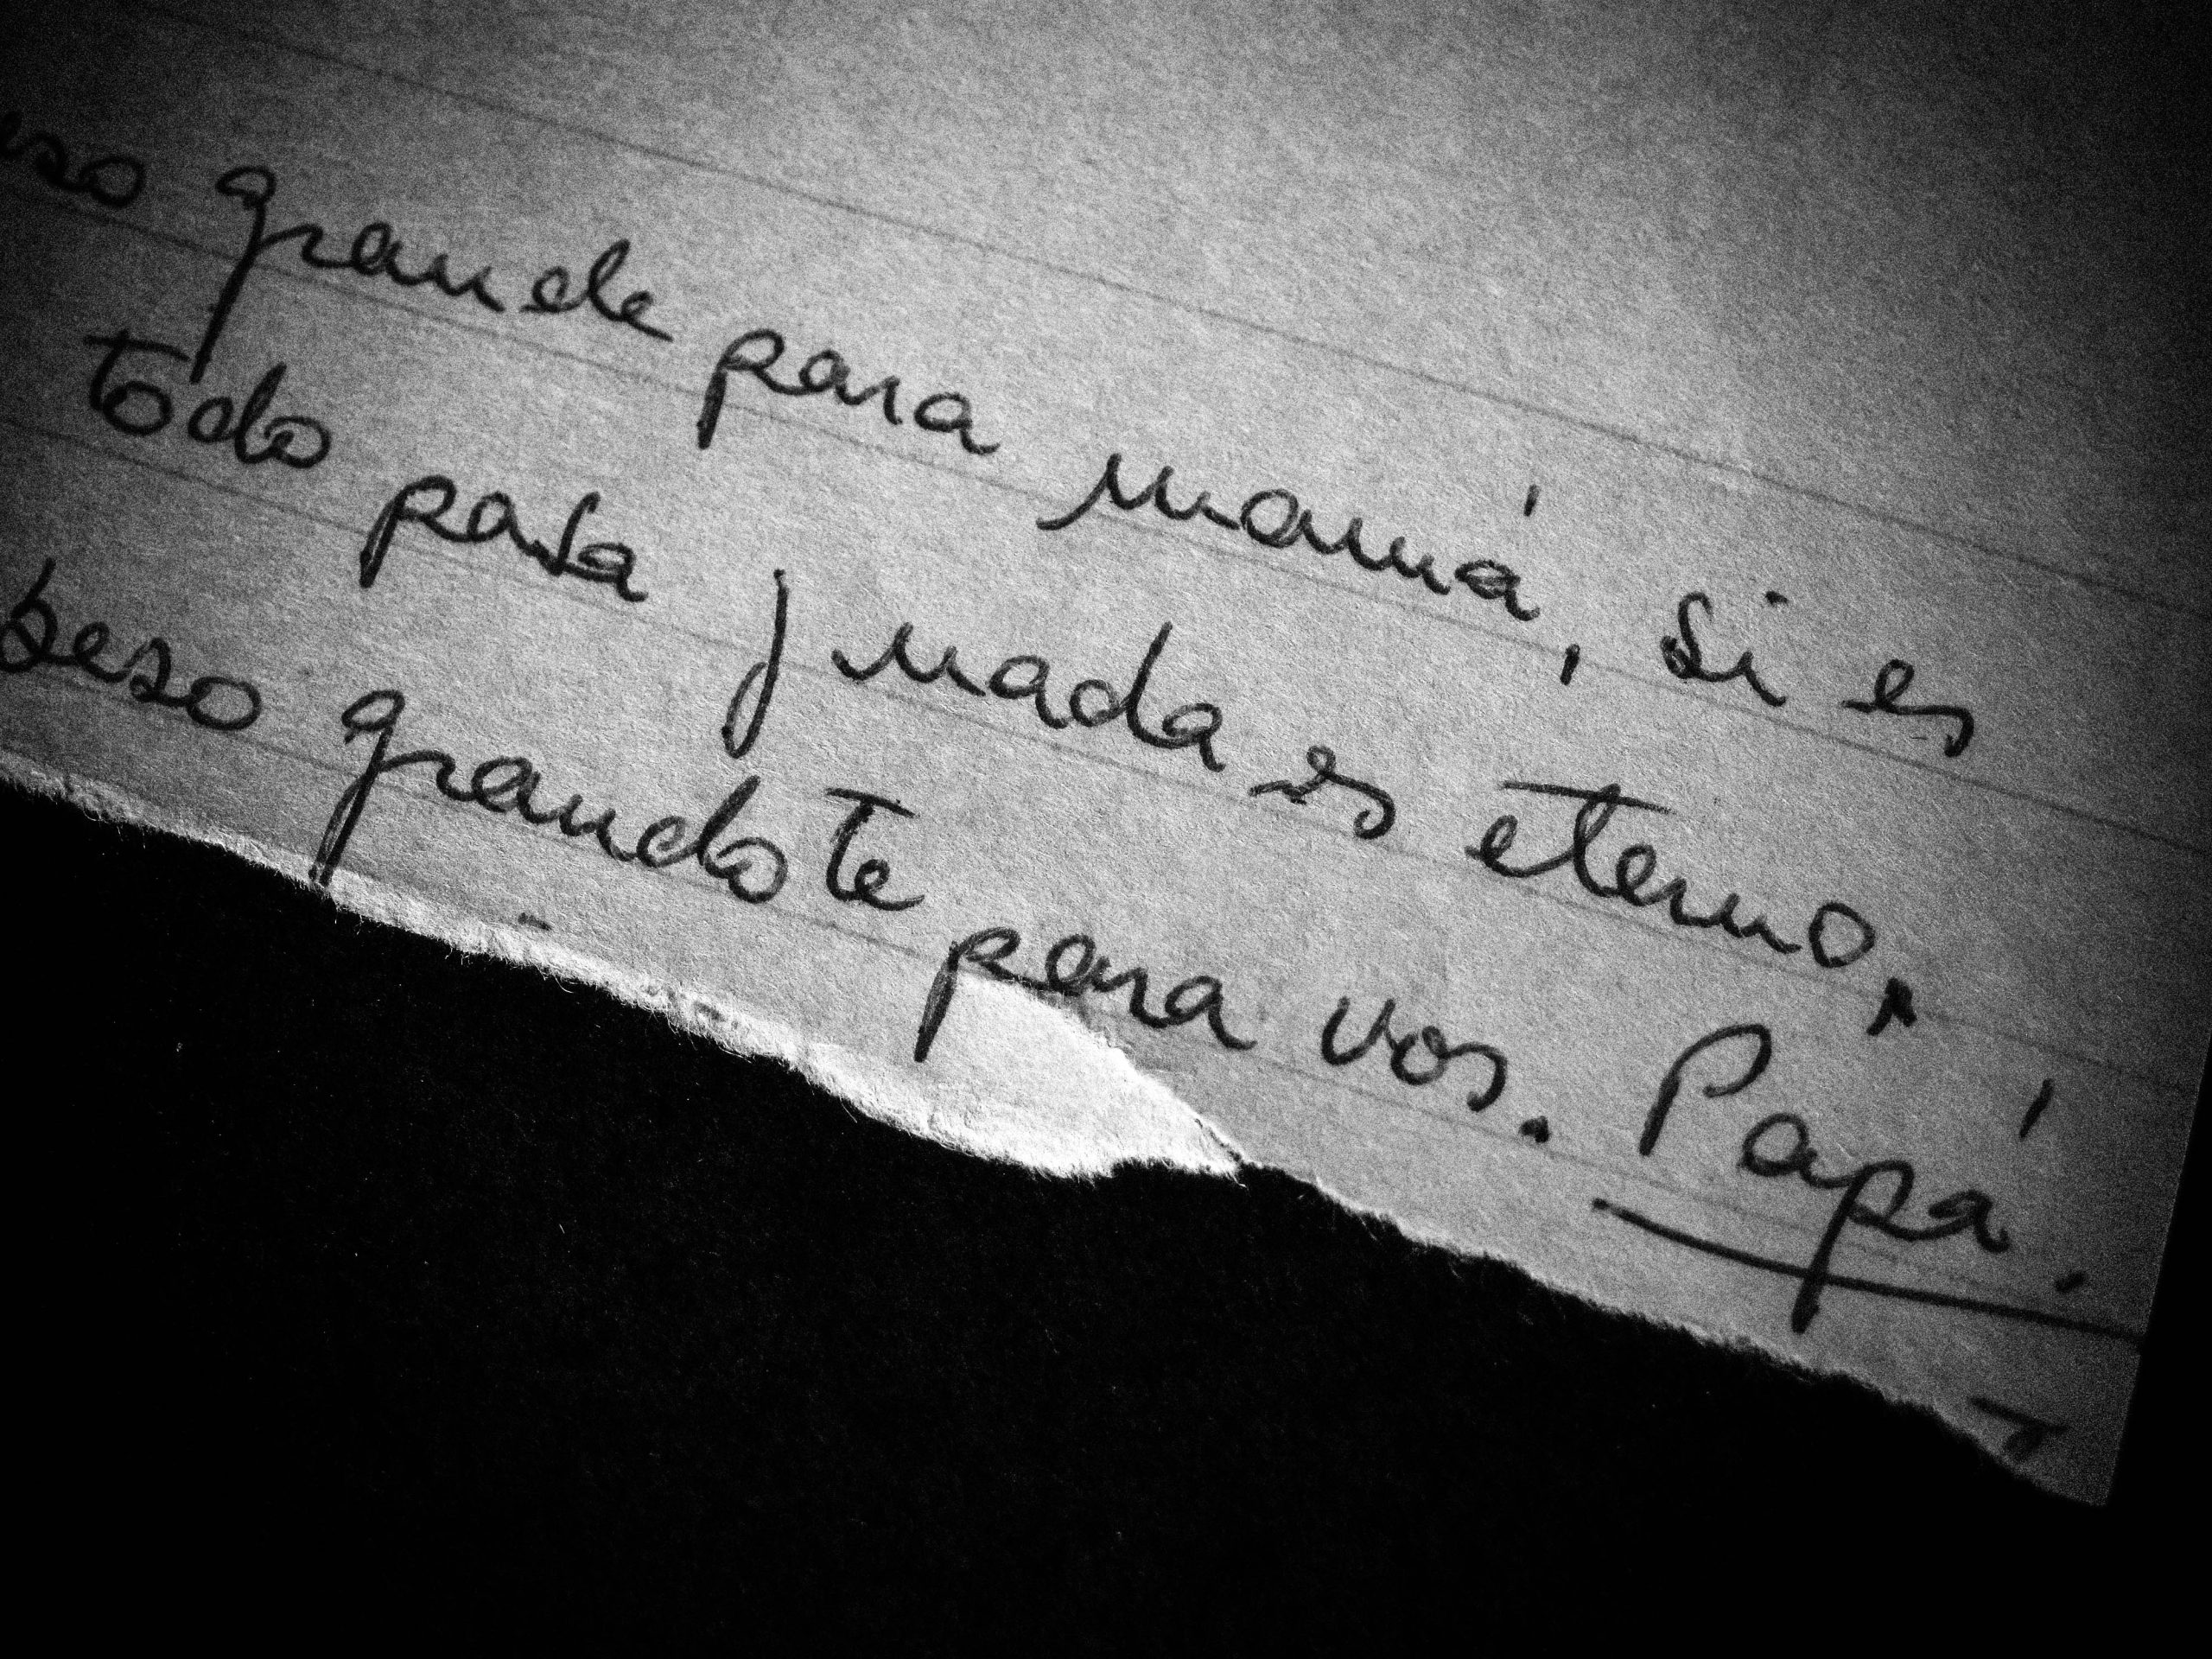 eso grande para mamá, si es
todo pasa y nada es eterno,
beso grandote para vos. Papá.